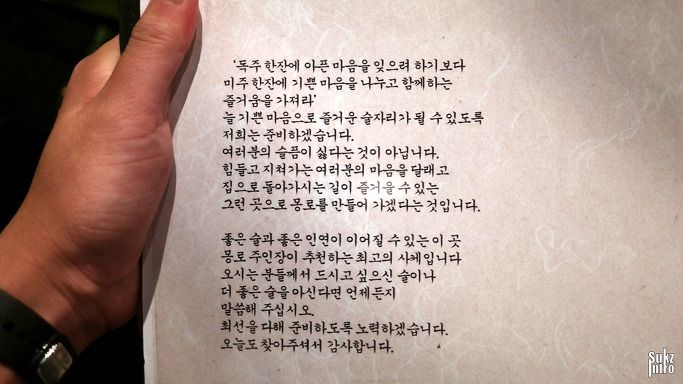 ‘독주 한잔에 아픈 마음을 잊으려 하기보다
미주 한잔에 기쁜 마음을 나누고 함께하는
즐거움을 가져라’
늘 기쁜 마음으로 즐거운 술자리가 될 수 있도록
저희는 준비하겠습니다.
여러분의 슬픔이 싫다는 것이 아닙니다.
힘들고 지쳐가는 여러분의 마음을 달래고
집으로 돌아가시는 길이 즐거울 수 있는
그런 곳으로 몽로를 만들어 가겠다는 것입니다.
좋은 술과 좋은 인연이 이어질 수 있는 이 곳
몽로 주인장이 추천하는 최고의 사케입니다
오시는 분들께서 드시고 싶으신 술이나
더 좋은 술을 아신다면 언제든지
말씀해 주십시오.
최선을 다해 준비하도록 노력하겠습니다.
오늘도 찾아주셔서 감사합니다.
Sukz
Intro